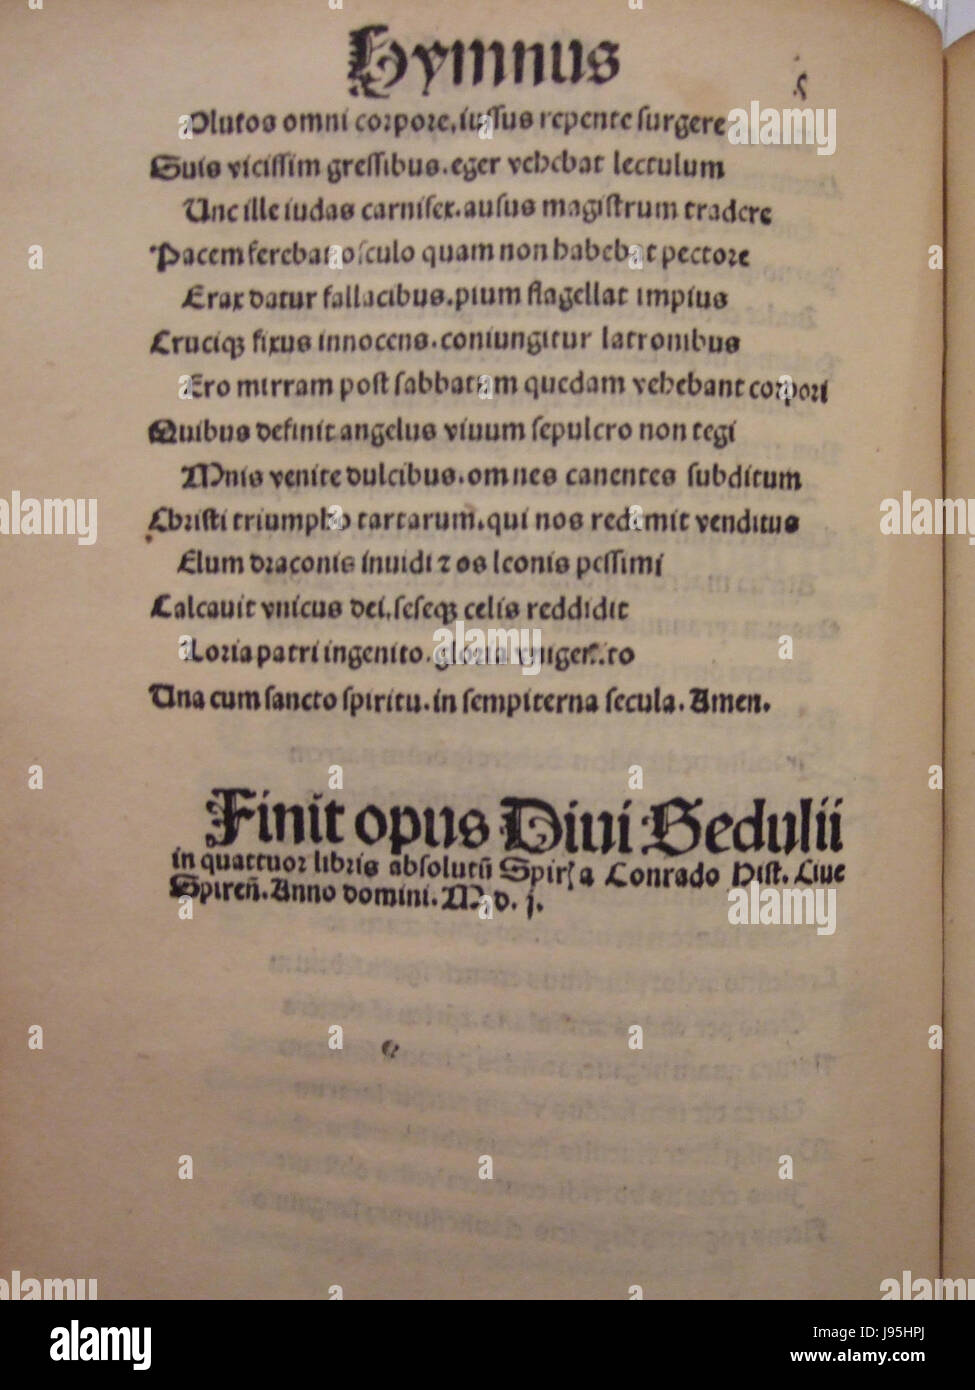 Hymnus
Olutos omni corpore, iussus repente surgere
Suis vicissim gressibus. eger vehebat lectulum
Unc ille iudas carnifex. ausus magistrum tradere
Pacem ferebat osculo quam non habebat pectore
Erax datur fallacibus. pium flagellat impius
Cruciqꝫ fixus innocens. coniungitur latronibus
Ero mirram post sabbatum quedam vehebant corpori
Quibus definit angelus viuum sepulcro non tegi
Mnis venite dulcibus. omnes canentes subditum
Christi triumpho tartarum. qui nos redemit venditus
Elum draconis inuidi ⁊ os leonis pessimi
Calcauit vnicus dei, seseqꝫ celis reddidit
Loria patri ingenito. gloria vnigenito
Una cum sancto spiritu. in sempiterna secula. Amen.
Finit opus Diui Sedulii
in quattuor libris absolutū Spirꝭ a Conrado Hist. Ciue
Spireñ. Anno domini. M. d. j.
alamy
a
alamy
Image ID: J95HPJ
www.alamy.com